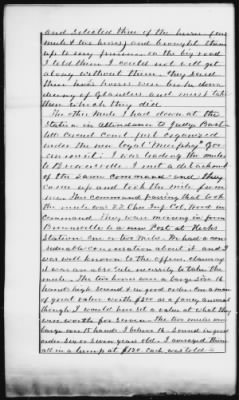 and selected three of the horses (one
mule & two horses) and brought them
up to my premises on the big road
I told them I could not well get
along without them. They said
their horses were broke down
of Glanders and must take
them which they did
The other Mule I had down at the
Station in attendance to Judge
Court Court just organized
under the new loyal "Murphy" Gov-
ernment. I was leading the mule
to Brownsville. I met a detachment
of the same Command and they
came up and took the mule from
me. The command passing that took
the mule was 22 Ohio Inf Col. Wood in
Command. They were moving in from
Brownsville to a new Post at Hicks
Station one or two miles. He had a con-
siderable conversation about it and I
was well known to the officer, claiming
it was an absolute necessity to take the
mule. The two horses were a large size 16
hands high sound & in good order. One a man
of great value worth $200 as a fancy animal
though I would here set a value at what they
were worth for service. The two mules were
large one 15 hands I believe 16. Sound in good
order six or seven years old. I averaged them
all in a lump at $150 each was told